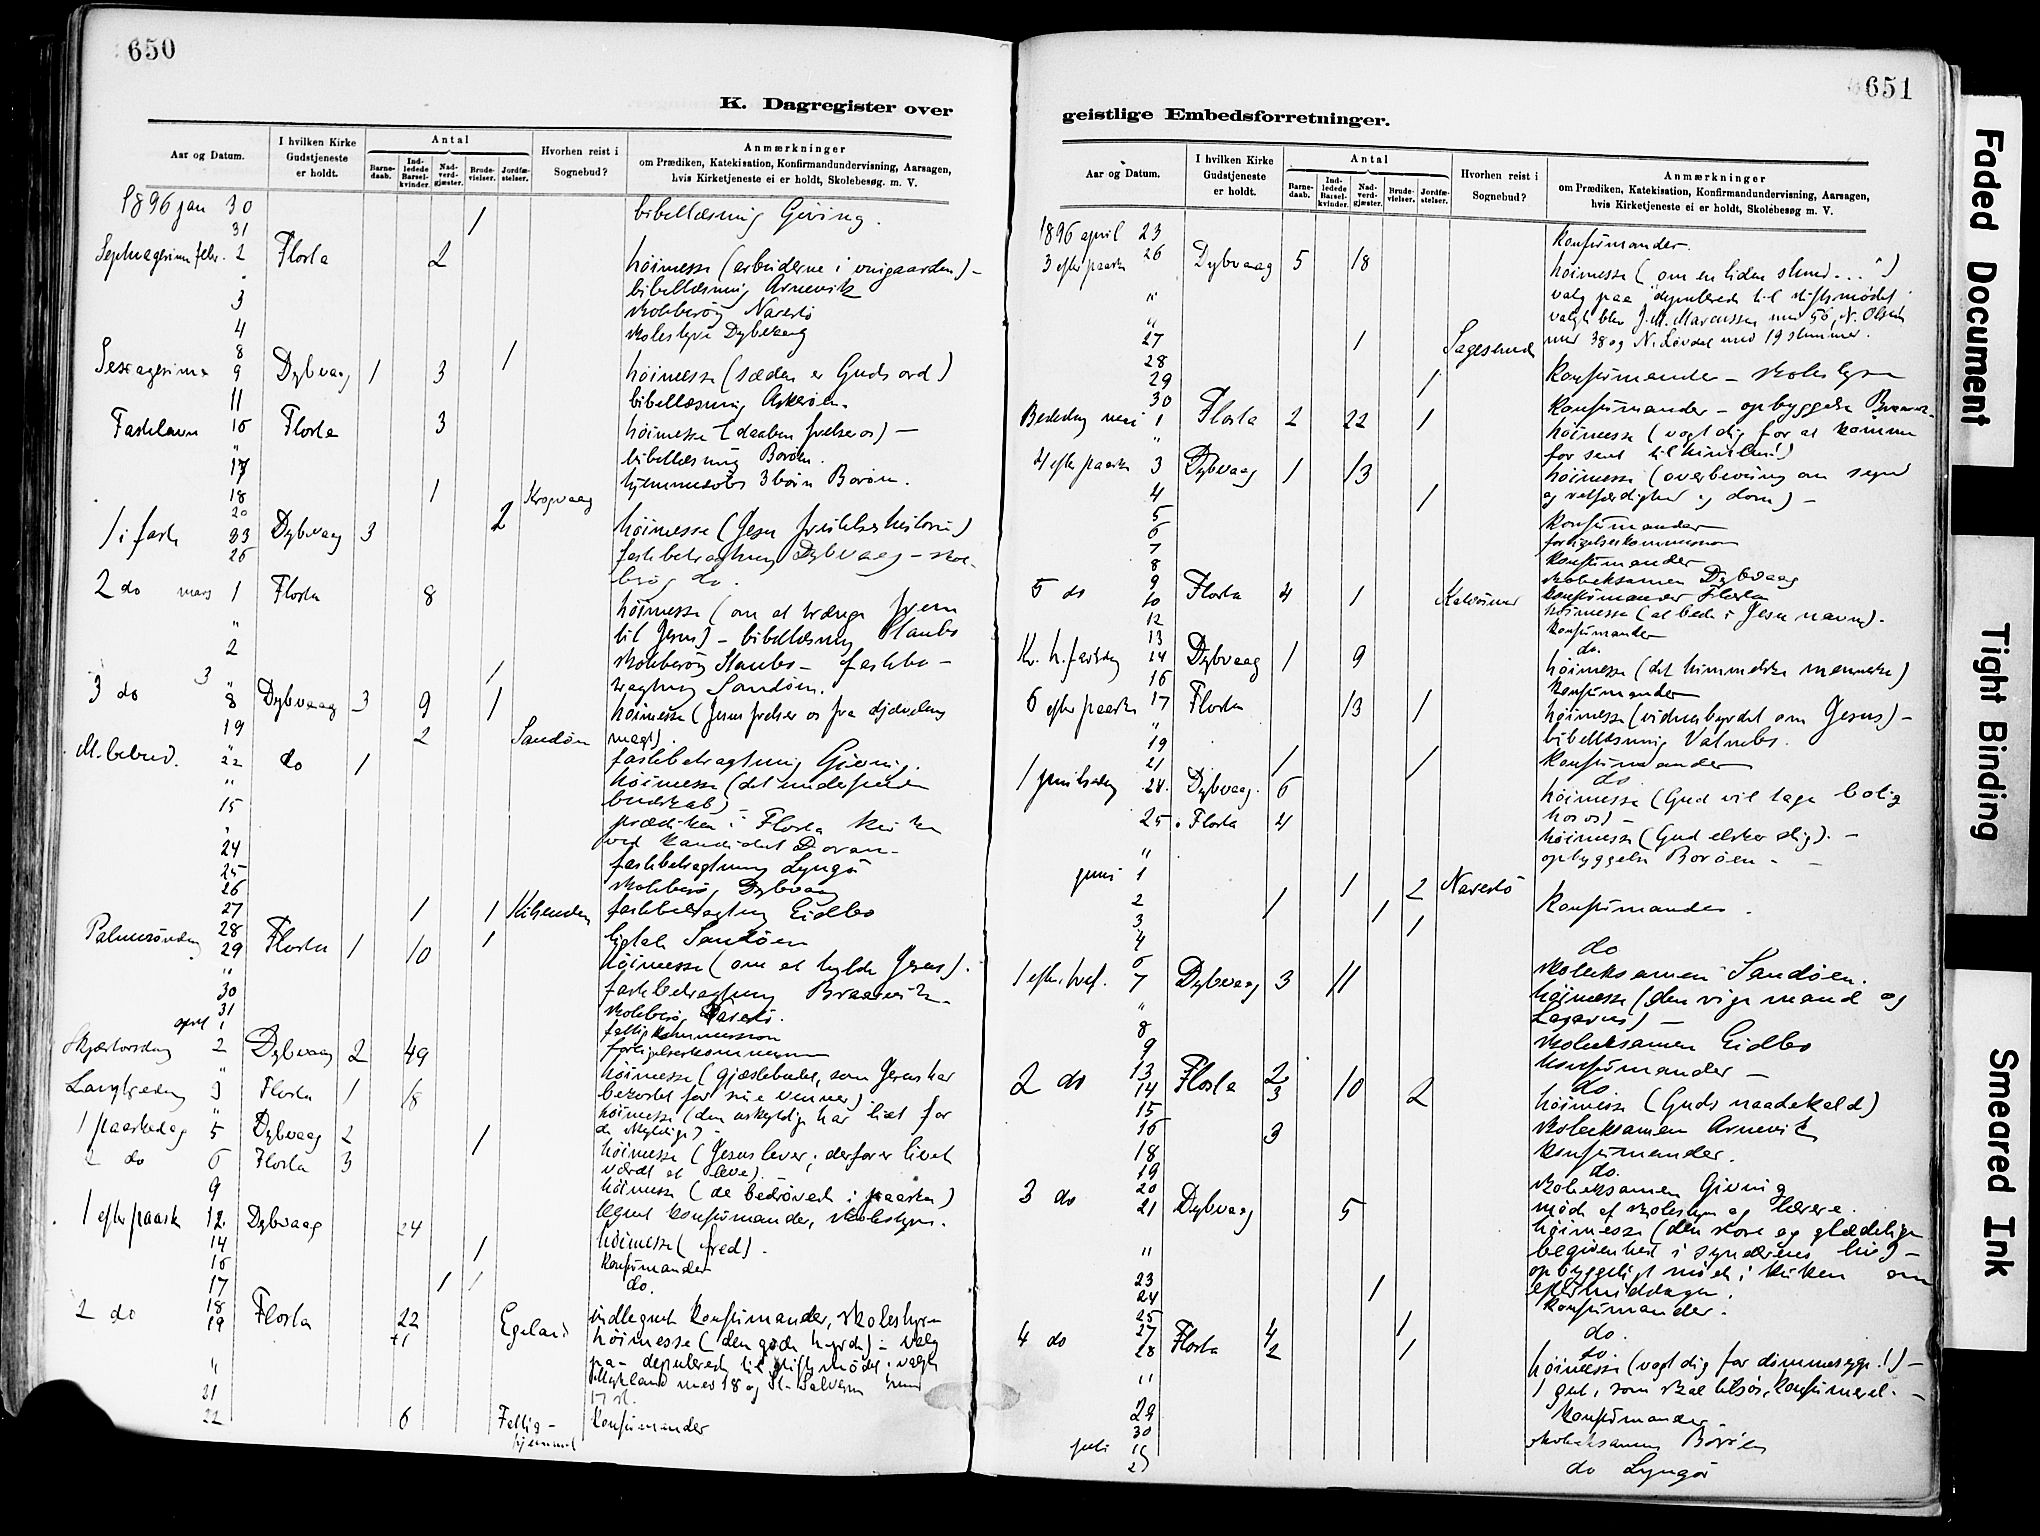 650
K. Dagregister over
Aar og Datum.
I hvilken Kirke Gudstjeneste er holdt.
Antal
Barnedaab.
Indledede Barselkvinder.
Nadverdgjæster.
Brudevielser.
Jordfæstelser.
Hvorhen reist i Sognebud?
Anmærkninger
om Prædiken, Katekisation, Konfirmandundervisning, Aarsagen,
hvis Kirketjeneste ei er holdt, Skolebesøg m. V.
1896 jan 30 1 bibellæsning Giving.
31
2 Flosta 2 høimesse (arbeiderne i vingaarden) -
" bibellæsning Arnevik
3 skolebesøg Narestø
4 skolestyre Dybvaag
8 1
Sexagesima 9 Dybvaag 1 3 høimesse (sæden er Guds ord)
11 bibellæsning Askerøen.
Fastelavn 16 Flosta 3 høimesse (daaben frelser os) -
" bibellæsning Borøen.
17 hjemmedøbt 3 børn Borøen.
18 1
20 2
1 i faste 23 Dybvaag 3 høimesse (Jesu fristelseshistorie)
26 fastebetragtning Dybvaag - skole-
besøg do.
2 do mars 1 Flosta 8 høimesse (om at trænge frem
" til Jesus) - bibellæsning Staubø
2 skolebesøg Staubø - fastebe-
3 1 tragtning Sandøen.
3 do 8 Dybvaag 3 9 1 høimesse (Jesus frelser os fra djævelens
19 2 Sandøen magt).
" fastebetragtning Giving.
M. bebud. 22 do 1 høimesse (det underfulde
" budskab)
15 prædiken i Flosta kirke
" ved kandidat
24 fastebetragtning Lyngør
25 skolebesøg Dybvaag
26
27 1 1 fastebetragtning Eidbo
28 1 Sandøen
Palmesøndag 29 Flosta 1 10 høimesse (om at hylde Jesus).
" fastebetragtning Braatvik.
30 skolebesøg Narestø.
31 fattigkommission
april 1 forligelseskommission
Skjærtorsdag 2 Dybvaag 2 49 høimesse (gjæstebudet, som Jesus har
" bekostet for sine venner)
Langfredag 3 Flosta 1 18 høimesse (den uskyldige har lidt for
" de skyldige) -
1 paaskedag 5 Dybvaag 2 1 høimesse (Jesus lever; derfor er livet
værdt at leve)
2 do 6 Flosta 3 høimesse (de bedrøvede i paasken)
9 begynt konfirmander, skolestyre.
1 efter paaske 12 Dybvaag 24 høimesse (fred).
14 1 konfirmander
16 do.
17 1 1
18 indtegnet konfirmander, skolestyre
2 do 19 Flosta 22 Egeland høimesse (den gode hyrde) - valg
+1
" paa deputerede til stiftsmødet. valgte
21 17 st.
22 6 Fattig- konfirmander
hjemmet
651
geistlige Embedsforretninger.
Aar og Datum.
I hvilken Kirke Gudstjeneste er holdt.
Antal
Barnedaab.
Indledede Barselkvinder.
Nadverdgjæster.
Brudevielser.
Jordfæstelser.
Hvorhen reist i Sognebud?
Anmærkninger
om Prædiken, Katekisation, Konfirmandundervisning, Aarsagen,
hvis Kirketjeneste ei er holdt, Skolebesøg m. V.
1896 april 23 konfirmander.
3 efter paaske 26 Dybvaag 5 18 høimesse (" om en liden stund...")
" valg paa deputerede til stiftsmødet
" valgt blev J. M. Marcussen med 56, N. Olsen
27 1 Sagesund med 38 og N. Løvdal med 19 stemmer.
28 konfirmander - skolestyre
29 1
30 konfirmander - opbyggelse
Bededag mai 1 Flosta 2 22 1 høimesse (vogt dig for at komme
" for sent til himlen!)
4 efter paaske 3 Dybvaag 1 13 høimesse (overbevisning om synd
4 1 og retfærdighed og dom) -
5 konfirmander
6 forligelseskommission
7 konfirmander
8 skoleeksamen Dybvaag
9 konfirmander Flosta
5 do 10 Flosta 4 1 høimesse (at bede i Jesu navn).
12 konfirmander
13 do.
Kr. h. fartsdag 14 Dybvaag 1 9 høimesse (det himmelske menneske)
16 konfirmander
6 efter paaske 17 Flosta 13 1 høimesse (vidnesbyrdet om Jesus) -
" bibellæsning Valnebo.
19 1 1 konfirmander
21 do
1 pintsedag 24. Dybvaag. 6 høimesse (Gud vil tage bolig
hos os) -
25 Flosta 4 høimesse (Gud elsker dig). -
" opbyggelse Borøen -
juni 1 1 2 Narestø
2 1 1 konfirmander.
3 1
4 do
6 skoleeksamen Sandøen.
1 efter tref. 7 Dybvaag 3 11 høimesse (den rige mand og
" Lazarus) -
8 skoleeksamen Eidbo
9 konfirmander -
13 2 do
2 do 14 Flosta 3 10 2 høimesse (Guds naadekald)
15 skoleeksamen Arnevik
16 3 konfirmander.
18 do.
19 skoleeksamen Giving
20 møde af skolestyre og lærere.
3 do 21 Dybvaag 5 høimesse (den store og glædelige
begivenhed i synderens liv) -
" opbyggeligt møde i kirken om
23 eftermiddagen.
24 1 konfirmander.
25 do.
27 4 1 do.
4 do 28 Flosta 2 1 høimesse (vogt dig for dømmesyge!) -
" 1 gut, som skal tilsjøs, konfirmeret. -
29 konfirmander.
30 skoleeksamen Borøen
juli do Lyngør
2
Faded Document
Tight Binding
Smeared Ink